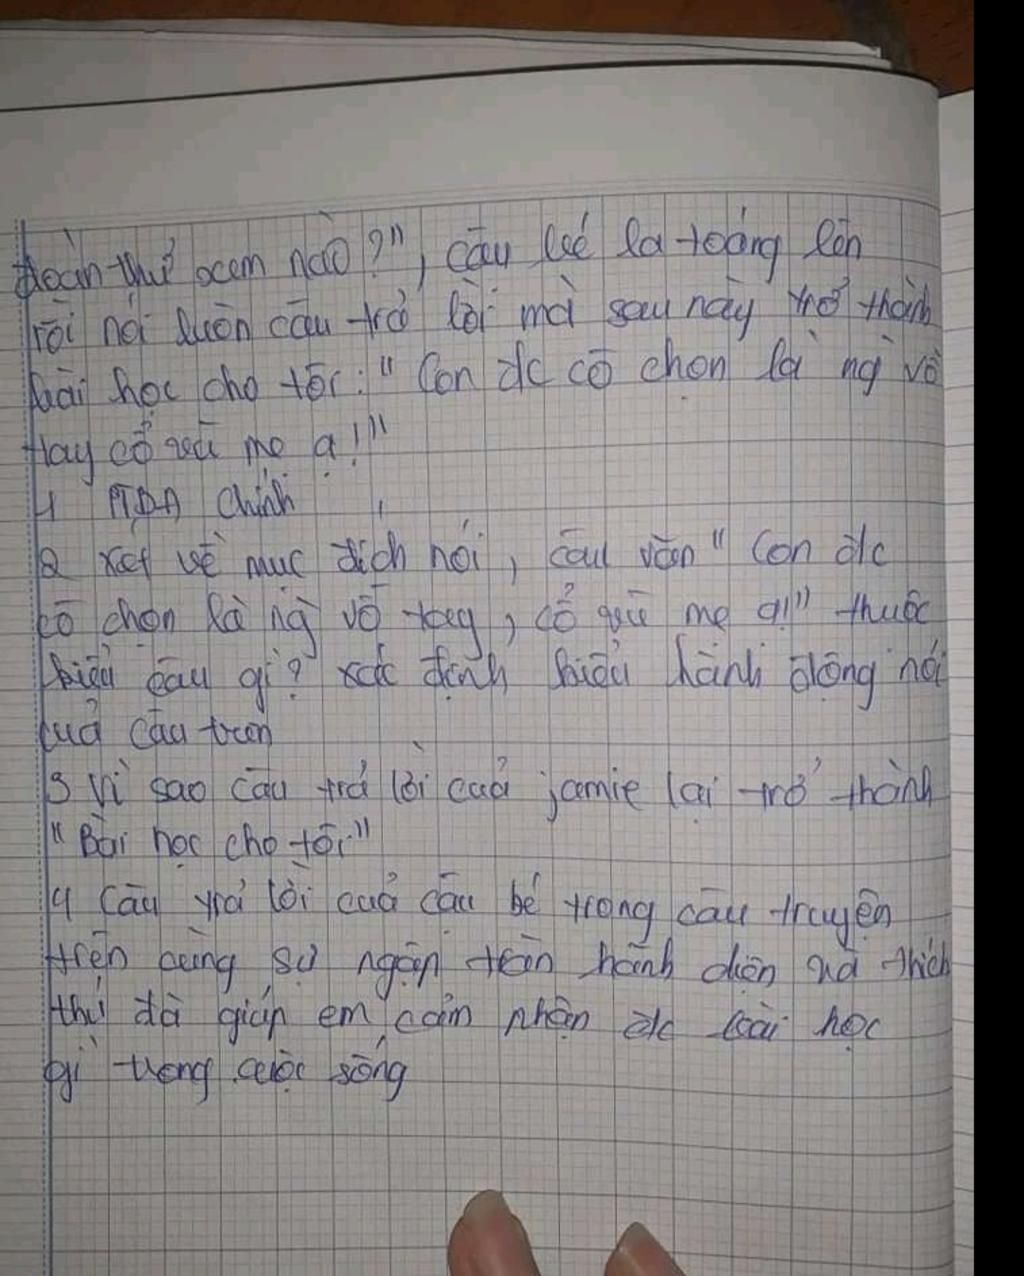 đoàn thử xem nào?", cậu bé la toáng lên
rồi nói luôn câu trả lời mà sau này trở thành
bài học cho tôi: "Con đc cô chọn là ng vỗ
tay cổ vũ mẹ ạ!"
1 PTDA Chính
2 xét về mục đích nói, câu văn "Con đc
cô chọn là ng vỗ tay, cổ vũ mẹ ạ!" thuộc
kiểu câu gì? xác định kiểu hành động nói
của câu trên
3 Vì sao câu trả lời của jamie lại trở thành
"Bài học cho tôi"
4 Câu trả lời của cậu bé trong câu truyện
trên cùng sự ngập tràn hãnh diện và thích
thú đã giúp em cảm nhận đc bài học
gì trong cuộc sống